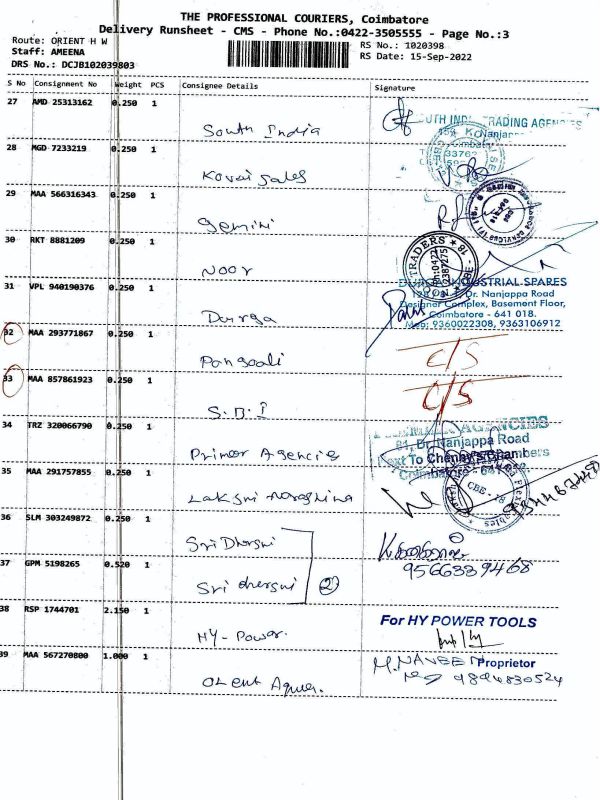 THE PROFESSIONAL COURIERS, Coimbatore
Delivery Runsheet - CMS - Phone No.:0422-3505555 - Page No.:3
Route: ORIENT H W
RS No.: 1020398
Staff: AMEENA
RS Date: 15-Sep-2022
DRS No.: DCJB102039803
S No Consignment No Weight PCS Consignee Details Signature
27 AMD 25313162 0.250 1
South India
28 MGD 7233219 0.250 1
Kovai Sales
29 MAA 566316343 0.250 1
Gemini
30 RKT 8881209 0.250 1
Noor
31 VPL 940190376 0.250 1
INDUSTRIAL SPARES
Dr. Nanjappa Road
Designer Complex, Basement Floor,
Durga
Coimbatore - 641 018.
Mob: 9360022308, 9363106912
32 MAA 293771867 0.250 1
C/S
33 MAA 857861923 0.250 1
S.B.I
C/S
34 TRZ 320066790 0.250 1
AGENCIES
81, Dr. Nanjappa Road
Primer Agencies
35 MAA 291757855 0.250 1
CBE - 18
36 SLM 303249872 0.250 1
37 GPM 5198265 0.520 1
9566339468
2
38 RSP 1744701 2.150 1
For HY POWER TOOLS
HY-Power.
39 MAA 567270800 1.000 1
M. NAVEEN Proprietor
9894830524